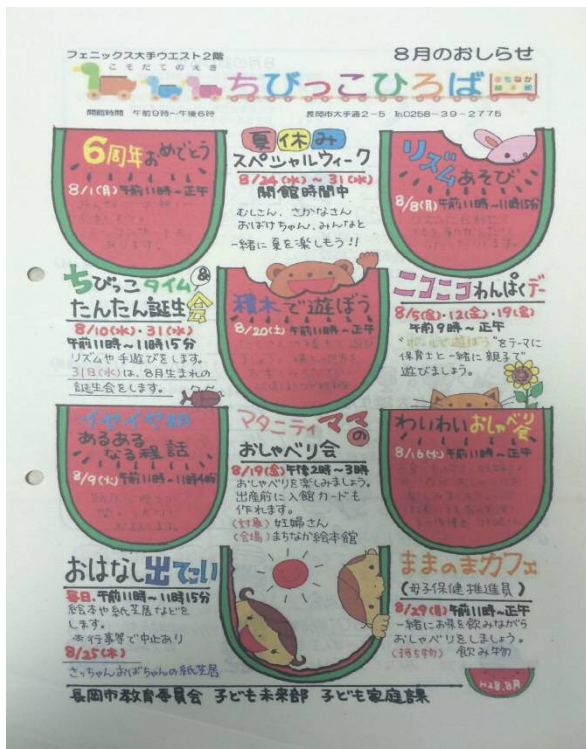 フェニックス大手ウエスト2階
8月のおしらせ
こそだてのえき
ちびっこひろば
まちなか
絵本館
開館時間 午前9時~午後6時
長岡市大手通2-5 ℡0258-39-2775
6周年おめでとう
8/1(月)午前11時~正午
夏休み
スペシャルウィーク
8/24(水)~31(水)
開館時間中
むしさん、さかなさん
おばけちゃん、みんなと
一緒に夏を楽しもう!!
リズムあそび
8/8(月)午前11時~11時15分
ちびっこタイム&
たんたん誕生会
8/10(水)・31(水)
午前11時~11時15分
リズムや手遊びをします。
31日(水)は、8月生まれの
誕生会をします。
積木で遊ぼう
8/20(土)午前11時~正午
ニコニコわんぱくデー
8/5(金)・12(金)・19(金)
午前9時~正午
"ボールで遊ぼう"をテーマに
保育士と一緒に親子で
遊びましょう。
イヤイヤ期
あるある
なる程話
8/9(火)午前11時~11時45分
マタニティママの
おしゃべり会
8/19(金)午後2時~3時
おしゃべりを楽しみましょう。
出産前に入館カードも
作れます。
(対象)妊婦さん
(会場)まちなか絵本館
わいわいおしゃべり会
8/16(火)午前11時~正午
おはなし出てこい
毎日・午前11時~11時15分
絵本や紙芝居などを
します。
※行事等で中止あり
8/25(木)
さっちゃんおばちゃんの紙芝居
ままのまカフェ
(母子保健推進員)
8/29(月)午前11時~正午
一緒にお茶を飲みながら
おしゃべりをしましょう。
(持ち物) 飲み物
長岡市教育委員会 子ども未来部 子ども家庭課
H28.8月